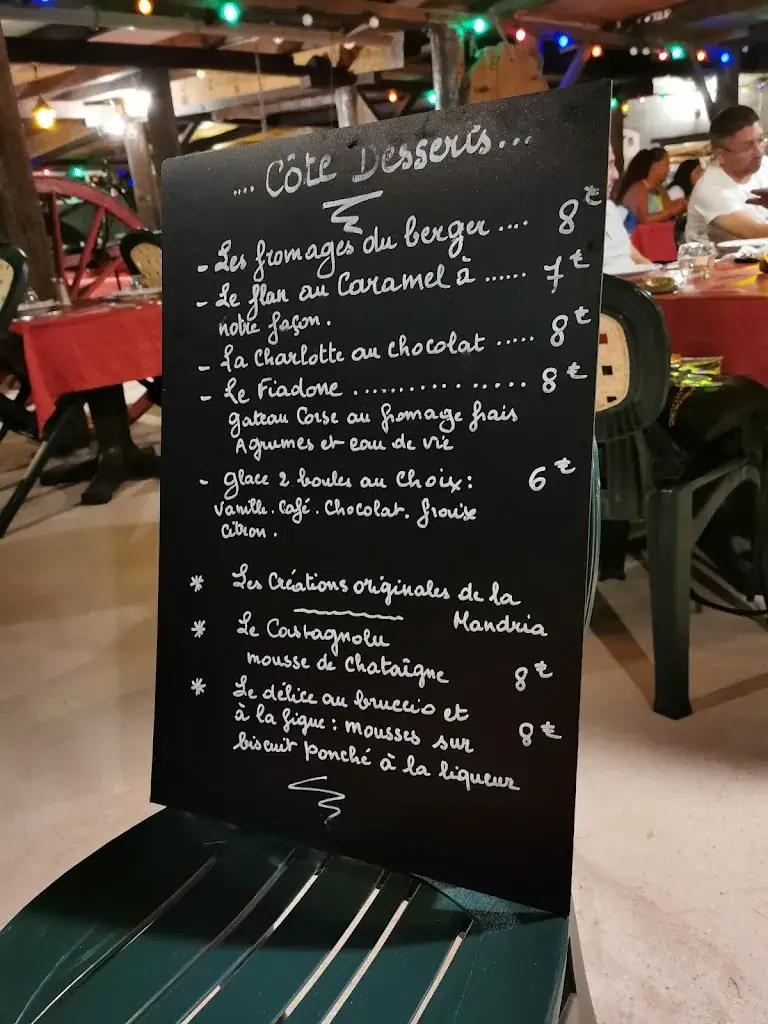 .... Côté Desserts...
- Les fromages du berger .... 8€
- Le flan au Caramel à ...... 7€
notre façon.
- La Charlotte au chocolat ..... 8€
- Le Fiadone ................ 8€
gateau Corse au fromage frais
Agrumes et eau de vie
- glace 2 boules au Choix : 6€
vanille. café. Chocolat. fraise
citron.
* Les Créations originales de la
Mandria
* Le Castagnolu
mousse de Chataîgne 8€
* Le délice au bruccio et
à la figue : mousses sur 8€
biscuit ponché à la liqueur